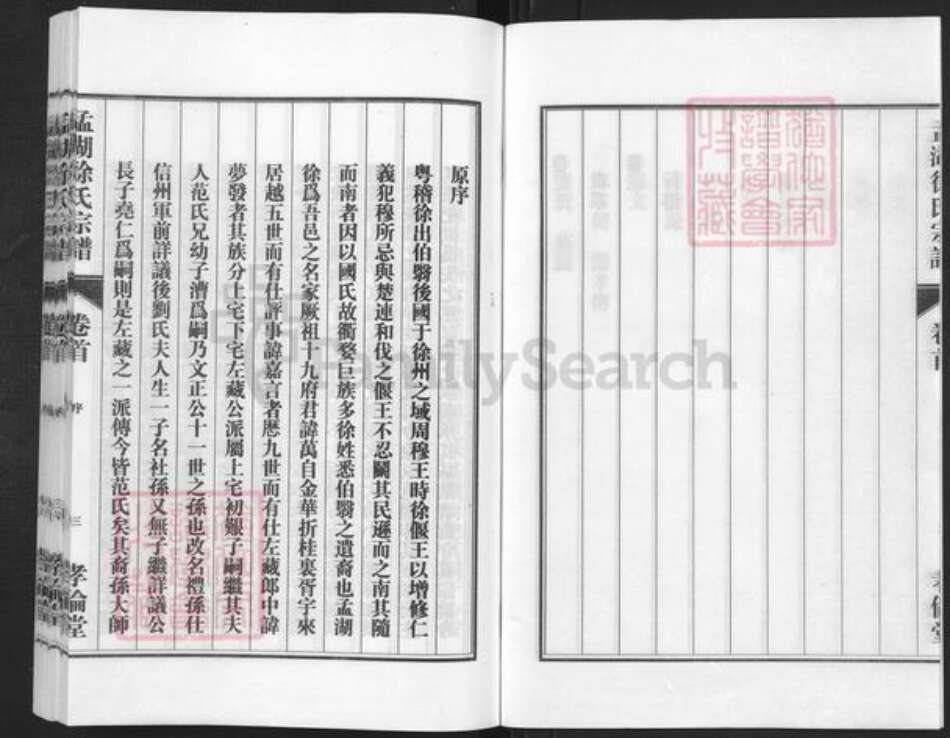 原序
粵稽徐出伯翳後國于徐州之域周穆王時徐偃王以增修仁
義犯穆所忌與楚連和伐之偃王不忍鬭其民遜而之南其隨
而南者因以國氏故衢婺巨族多徐姓悉伯翳之遺裔也孟湖
徐爲吾邑之名家厥祖十九府君諱萬自金華折桂裏胥宇來
居越五世而有仕評事諱嘉言者歷九世而有仕左藏郎中諱
夢發者其族分上宅下宅左藏公派屬上宅初艱子嗣繼其夫
人范氏兄幼子漕爲嗣乃文正公十一世之孫也改名禮孫仕
信州軍前詳議後劉氏夫人生一子名社孫又無子繼詳議公
長子堯仁爲嗣則是左藏之一派傳今皆范氏矣其裔孫大師
孟湖徐氏宗譜 卷首 序 三 孝倫堂
FamilySearch